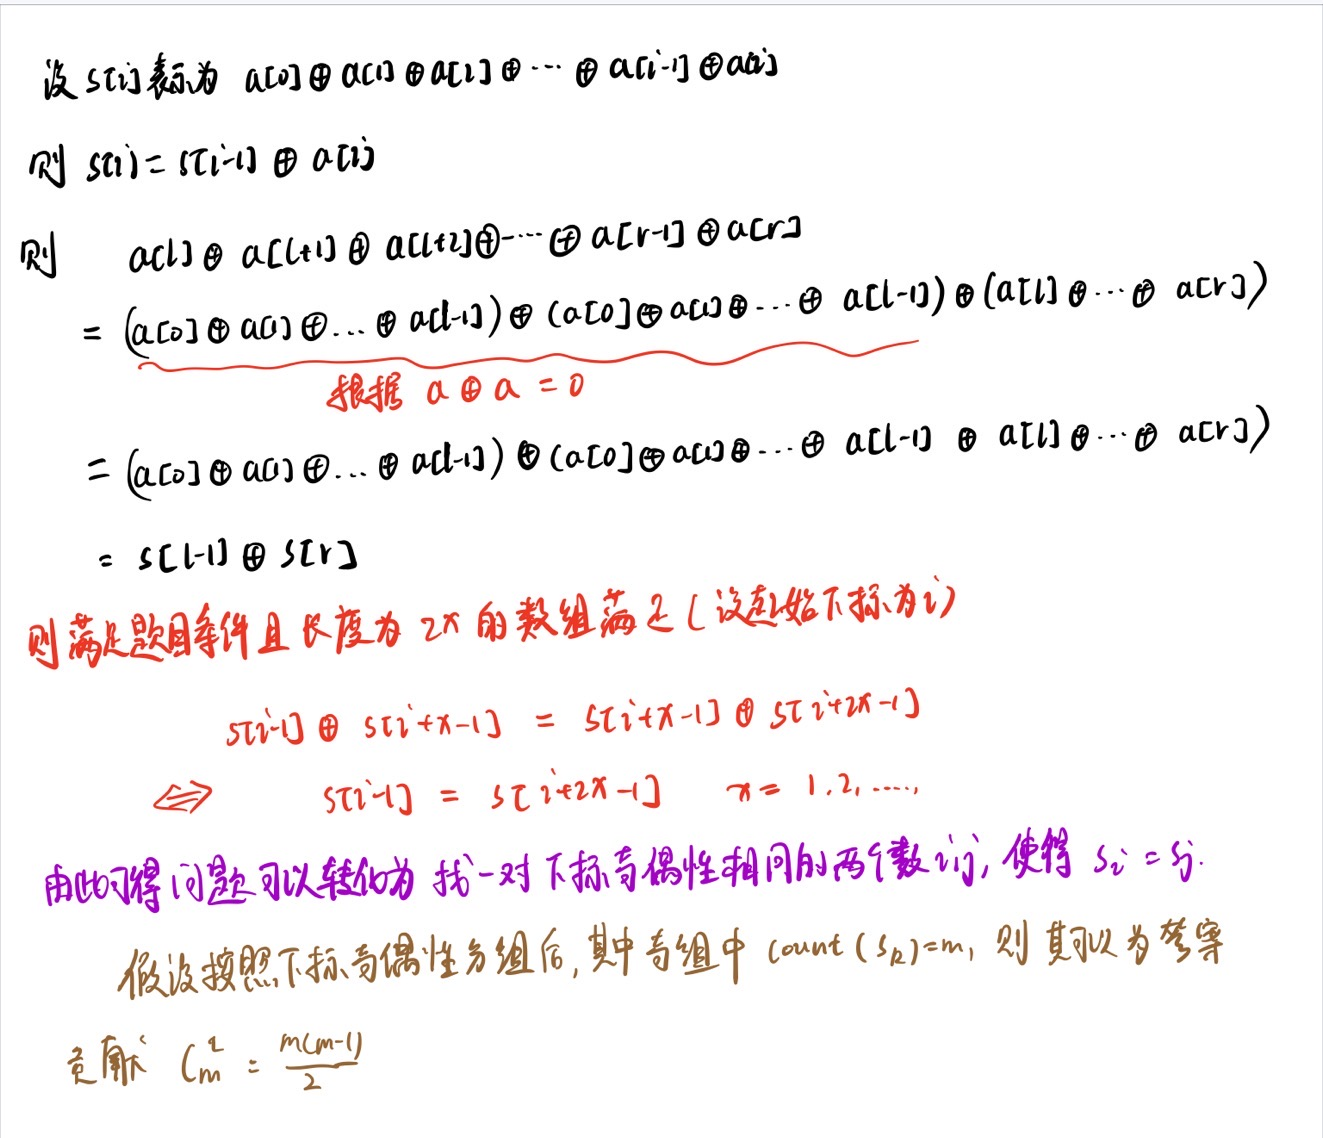 设 s[i] 表示为 a[0] ⊕ a[1] ⊕ a[2] ⊕ ··· ⊕ a[i-1] ⊕ a[i]
则 s[i] = s[i-1] ⊕ a[i]
则 a[l] ⊕ a[l+1] ⊕ a[l+2] ⊕ ··· ⊕ a[r-1] ⊕ a[r]
= (a[0] ⊕ a[1] ⊕ ... ⊕ a[l-1]) ⊕ (a[0] ⊕ a[1] ⊕ ... ⊕ a[l-1]) ⊕ (a[l] ⊕ ··· ⊕ a[r])
根据 a ⊕ a = 0
= (a[0] ⊕ a[1] ⊕ ... ⊕ a[l-1]) ⊕ (a[0] ⊕ a[1] ⊕ ... ⊕ a[l-1] ⊕ a[l] ⊕ ··· ⊕ a[r])
= s[l-1] ⊕ s[r]
则满足题目条件且长度为 2x 的数组满足 (设起始下标为 i)
s[i-1] ⊕ s[i+x-1] = s[i+x-1] ⊕ s[i+2x-1]
⇔ s[i-1] = s[i+2x-1] x = 1.2, ....,
由此可得问题可以转化为 找一对下标奇偶性相同的两个数 i,j, 使得 s_i = s_j.
假设按照下标奇偶性分组后, 其中奇组中 count(s_k)=m, 则其可以为答案
贡献 C_m^2 = m(m-1)/2